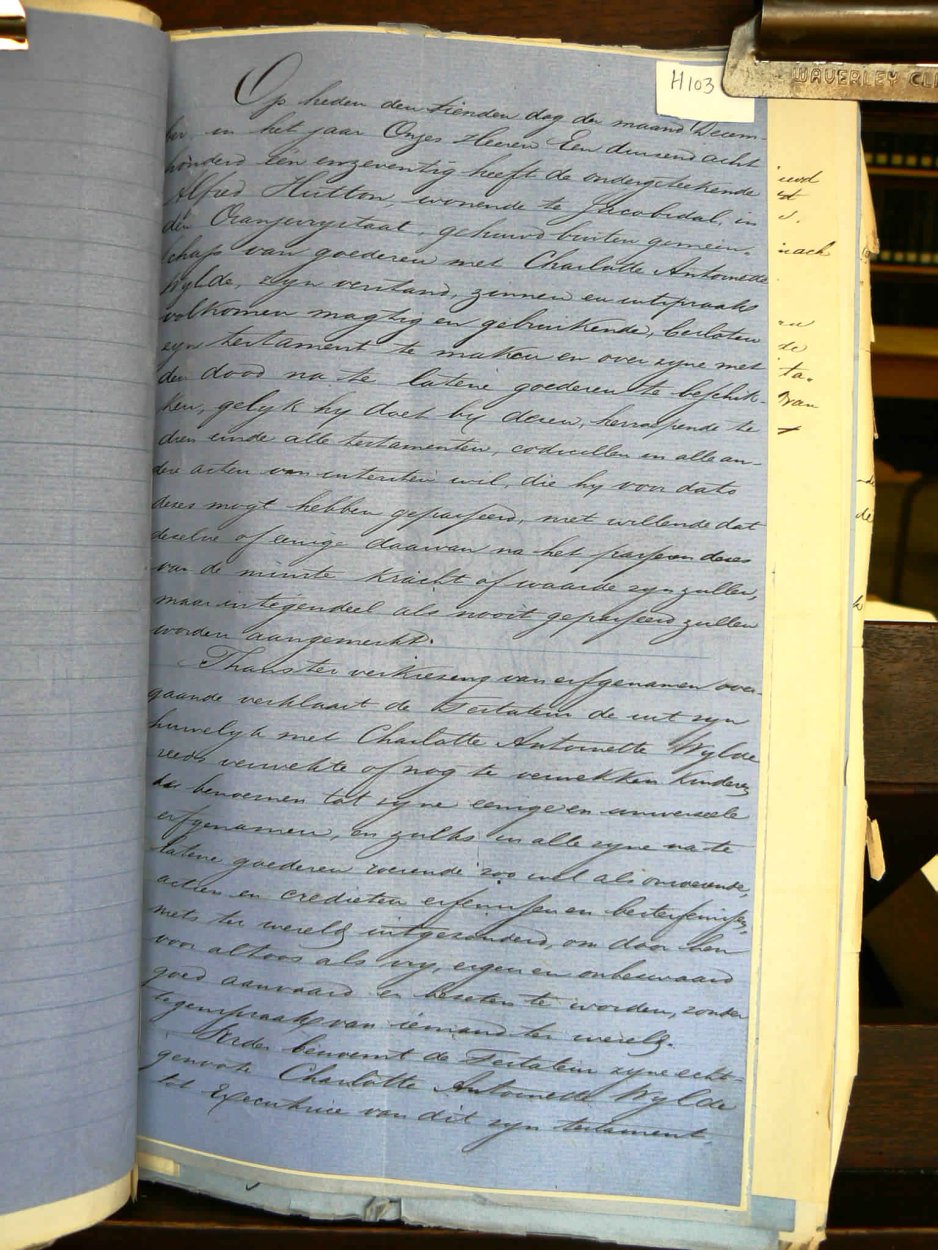 H103
WAVERLEY CLI
Op heden den tienden dag der maand Decem-
ber, in het jaar Onzes Heeren Een duizend acht
honderd één enzeventig heeft de ondergeteekende
Alfred Hutton, wonende te Jacobsdal, in
den Oranjevrystaat, gehuwd buiten gemeen-
schap van goederen met Charlotte Antoinette
Wylde, zyn verstand, zinnen en uitspraak
volkomen magtig en gebruikende, besloten
zyn testament te maken en over zyne met
den dood na te latene goederen te beschik-
ken, gelyk hy doet by dezen, herroepende te
dien einde alle testamenten, codicillen en alle an-
dere acten van uitersten wil, die hy voor dato
dezes mogt hebben gepasseerd, niet willende dat
dezelve of eenige daarvan na het passeren dezes
van de minste kracht of waarde zyn zullen,
maar integendeel als nooit gepasseerd zullen
worden aangemerkt.
Thans ter verkiezing van erfgenamen over-
gaande verklaart de Testateur de uit zyn
huwelyk met Charlotte Antoinette Wylde
reeds verwekte of nog te verwekken kinderen
te benoemen tot zyne eenige en universeele
erfgenamen, en zulks in alle zyne na te
latene goederen roerende zoo wel als onroerende,
actien en crediten erfenissen en besterfenissen,
niets ter wereld uitgezonderd, om door hen
voor altoos als vry, eigen en onbezwaard
goed aanvaard en bezeten te worden, zonder
tegenspraak van iemand ter wereld.
Verder benoemt de Testateur zyne echt-
genoote Charlotte Antoinette Wylde
tot Executrice van dit zyn testament,